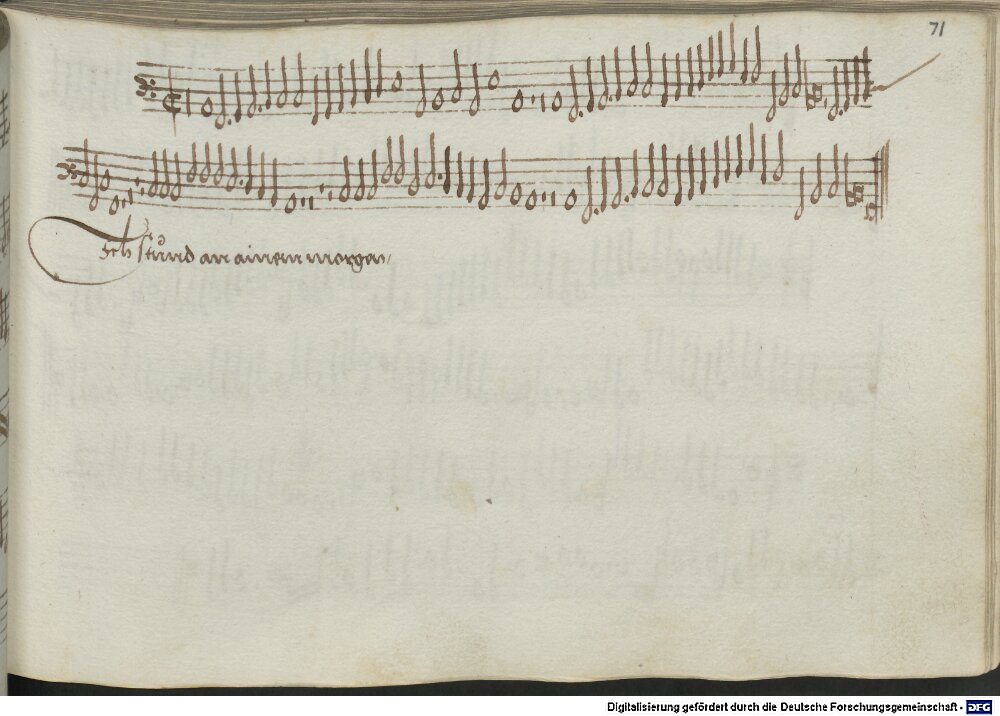 71
Ich stund an ainem morgen
Digitalisierung gefördert durch die Deutsche Forschungsgemeinschaft - DFG